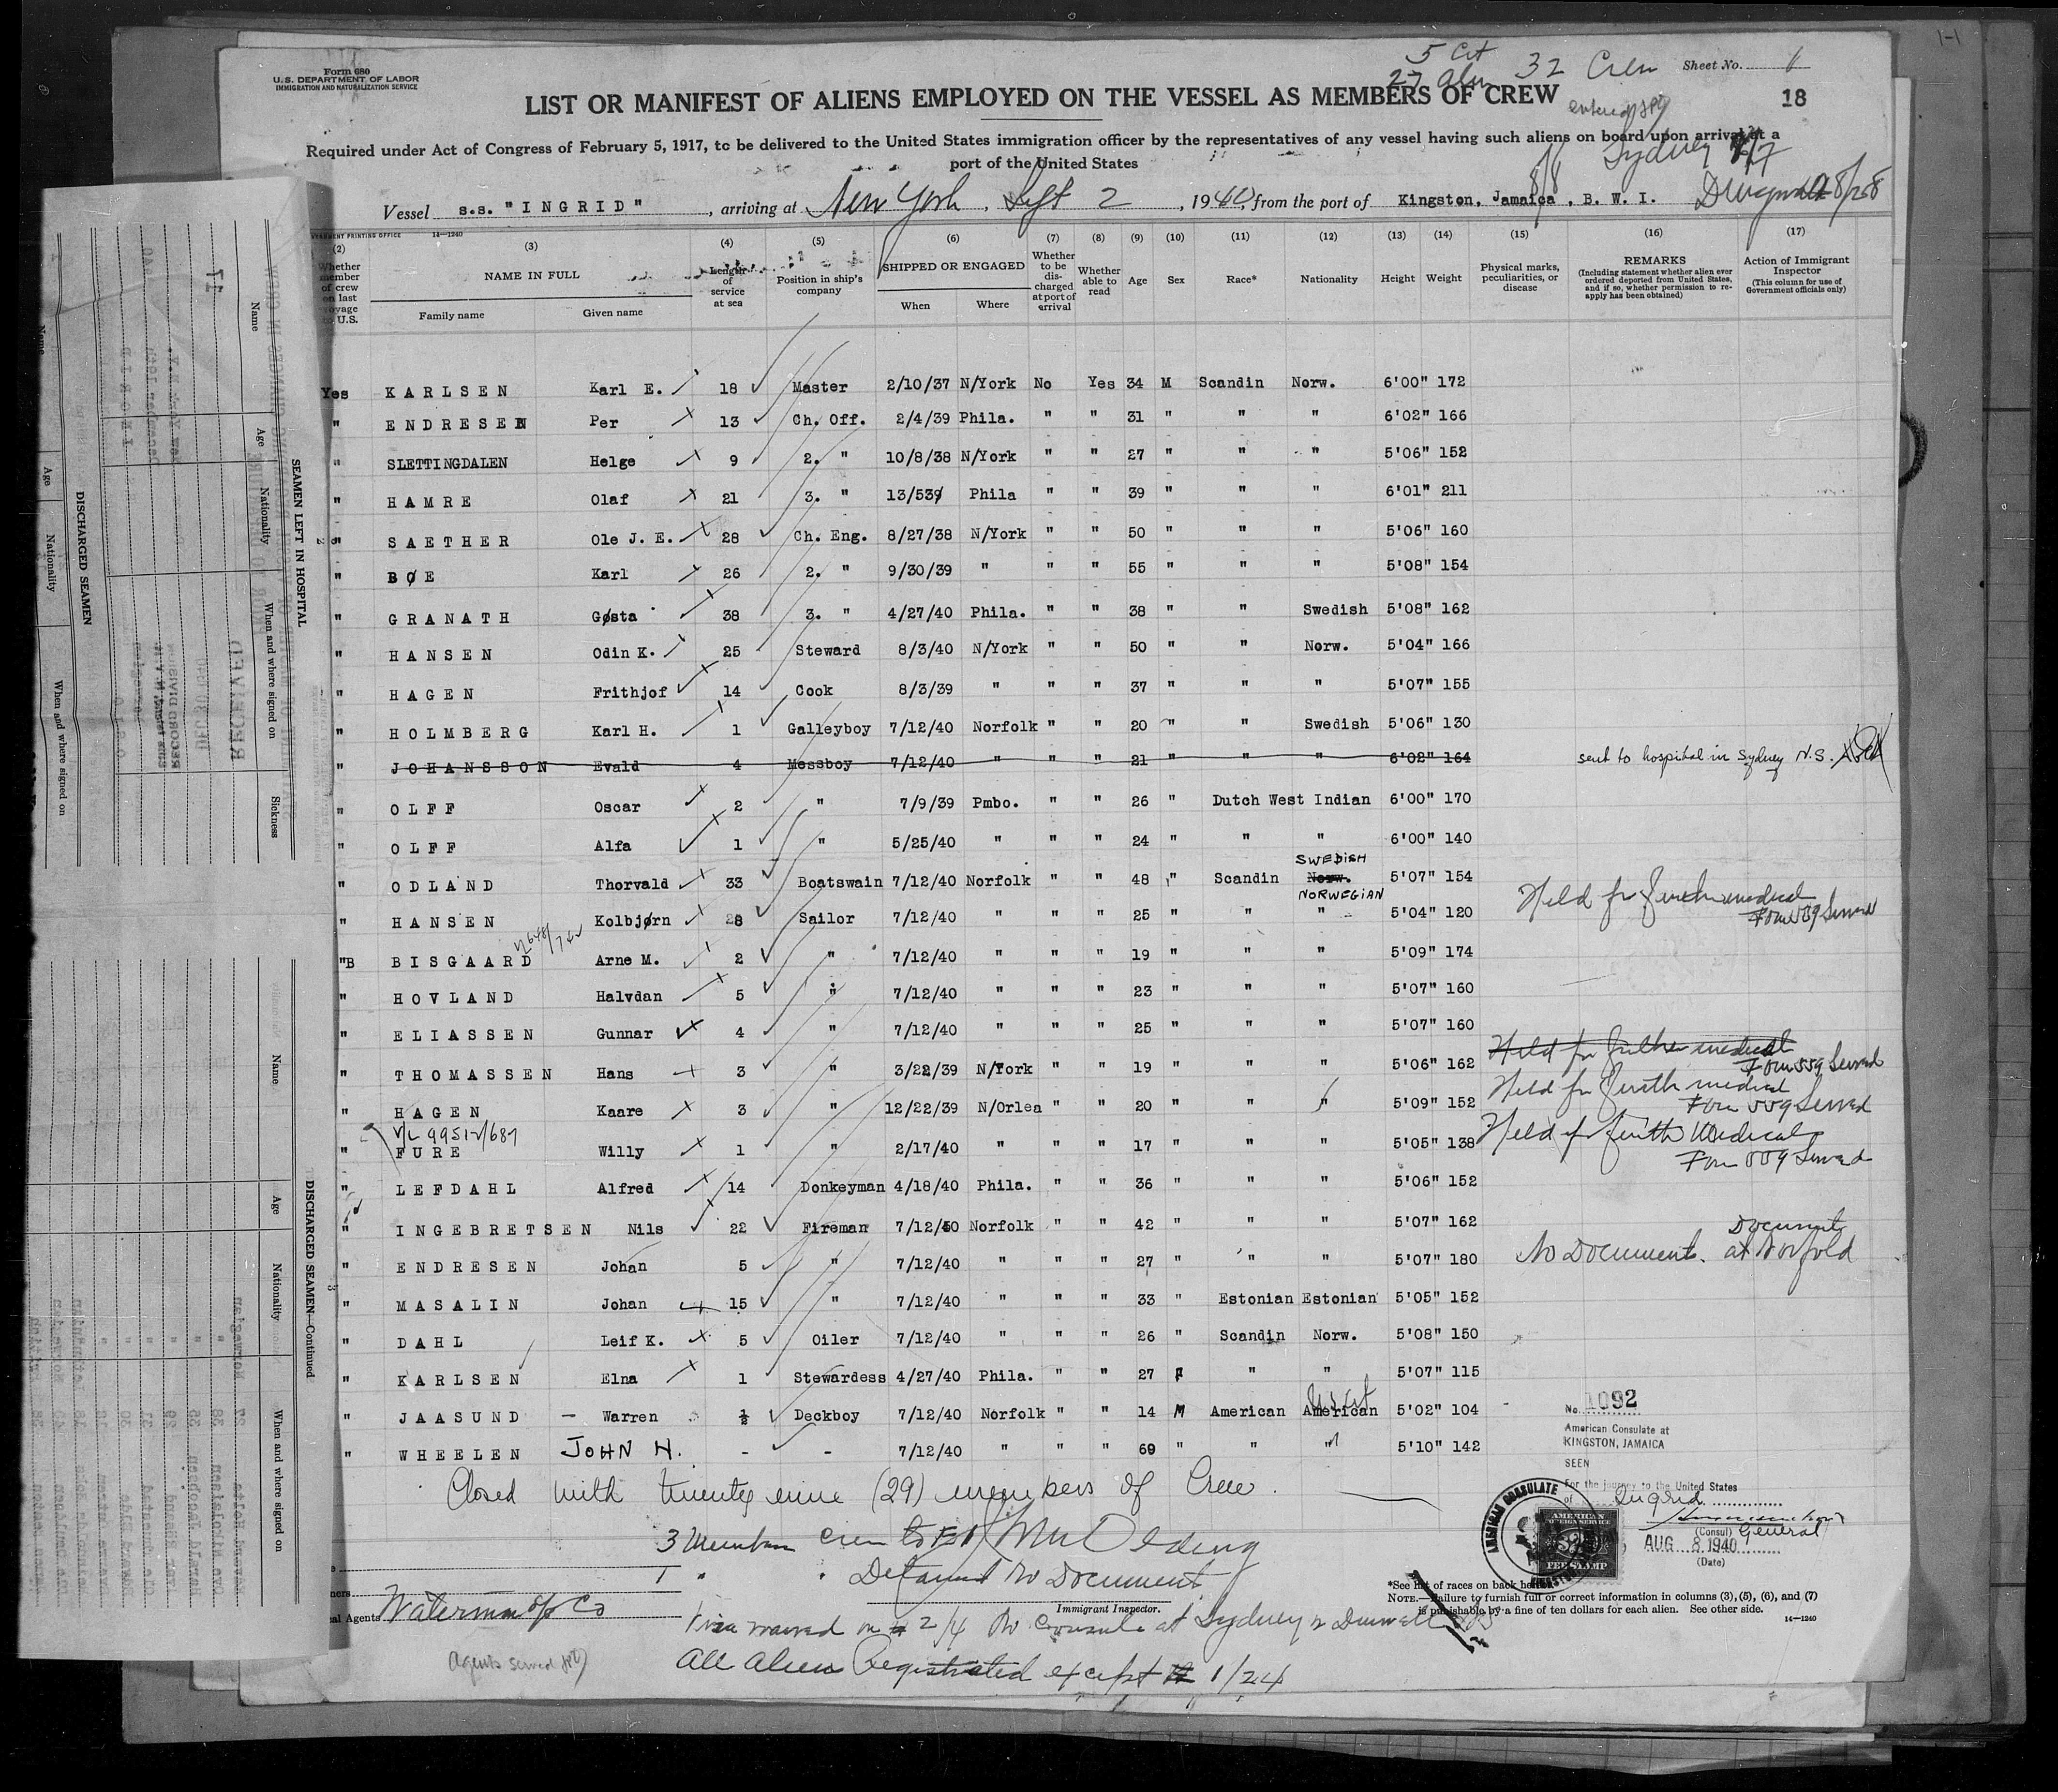 5 Cit
27 Alien 32 Crew Sheet No. 1
Form 680
U.S. DEPARTMENT OF LABOR
IMMIGRATION AND NATURALIZATION SERVICE
LIST OR MANIFEST OF ALIENS EMPLOYED ON THE VESSEL AS MEMBERS OF CREW
18
Required under Act of Congress of February 5, 1917, to be delivered to the United States immigration officer by the representatives of any vessel having such aliens on board upon arrival at a
port of the United States
Sydney
Vessel s.s. "INGRID", arriving at New York, Sept 2, 1940, from the port of Kingston, Jamaica, B. W. I.
8/8
14—1240
(2) (3) (4) (5) (6) (7) (8) (9) (10) (11) (12) (13) (14) (15) (16) (17)
Whether member of crew on last voyage to U.S.
NAME IN FULL
Family name Given name
Length of service at sea
Position in ship's company
SHIPPED OR ENGAGED
When Where
Whether to be discharged at port of arrival
Whether able to read
Age
Sex
Race*
Nationality
Height
Weight
Physical marks, peculiarities, or disease
REMARKS
(Including statement whether alien ever ordered deported from United States, and if so, whether permission to reapply has been obtained)
Action of Immigrant Inspector
(This column for use of Government officials only)
Yes KARLSEN Karl E. 18 Master 2/10/37 N/York No Yes 34 M Scandin Norw. 6'00" 172
" ENDRESEN Per 13 Ch. Off. 2/4/39 Phila. " " 31 " " " 6'02" 166
" SLETTINGDALEN Helge 9 2. " 10/8/38 N/York " " 27 " " " 5'06" 152
" HAMRE Olaf 21 3. " 13/539 Phila " " 39 " " " 6'01" 211
" SAETHER Ole J. E. 28 Ch. Eng. 8/27/38 N/York " " 50 " " " 5'06" 160
" BØE Karl 26 2. " 9/30/39 " " " 55 " " " 5'08" 154
" GRANATH Gøsta 38 3. " 4/27/40 Phila. " " 38 " " Swedish 5'08" 162
" HANSEN Odin K. 25 Steward 8/3/40 N/York " " 50 " " Norw. 5'04" 166
" HAGEN Frithjof 14 Cook 8/3/39 " " " 37 " " " 5'07" 155
" HOLMBERG Karl H. 1 Galleyboy 7/12/40 Norfolk " " 20 " " Swedish 5'06" 130
" JOHANSSON Evald 4 Messboy 7/12/40 " " " 21 " " " 6'02" 164 sent to hospital in Sydney N.S.
" OLFF Oscar 2 " 7/9/39 Pmbo. " " 26 " Dutch West Indian 6'00" 170
" OLFF Alfa 1 " 5/25/40 " " " 24 " " " 6'00" 140
SWEDISH
" ODLAND Thorvald 33 Boatswain 7/12/40 Norfolk " " 48 " Scandin Norw. 5'07" 154
NORWEGIAN
" HANSEN Kolbjørn 28 Sailor 7/12/40 " " " 25 " " " 5'04" 120 Held for further medical
Form 559 Served
"B BISGAARD Arne M. 2 " 7/12/40 " " " 19 " " " 5'09" 174
" HOVLAND Halvdan 5 " 7/12/40 " " " 23 " " " 5'07" 160
" ELIASSEN Gunnar 4 " 7/12/40 " " 25 " " " 5'07" 160
Held for further medical
" THOMASSEN Hans 3 " 3/22/39 N/York " " 19 " " " 5'06" 162 Form 559 Served
Held for further medical
" HAGEN Kaare 3 " 12/22/39 N/Orlea " " 20 " " " 5'09" 152 Form 559 Served
" FURE Willy 1 " 2/17/40 " " " 17 " " " 5'05" 138 Held for further Medical
Form 559 Served
" LEFDAHL Alfred 14 Donkeyman 4/18/40 Phila. " " 36 " " " 5'06" 152
" INGEBRETSEN Nils 22 Fireman 7/12/40 Norfolk " " 42 " " " 5'07" 162
" ENDRESEN Johan 5 " 7/12/40 " " " 27 " " " 5'07" 180 No Document. Document at Norfolk
" MASALIN Johan 15 " 7/12/40 " " " 33 " Estonian Estonian 5'05" 152
" DAHL Leif K. 5 Oiler 7/12/40 " " " 26 " Scandin Norw. 5'08" 150
" KARLSEN Elna 1 Stewardess 4/27/40 Phila. " " 27 F " " 5'07" 115
" JAASUND - Warren ½ Deckboy 7/12/40 Norfolk " " 14 M American American 5'02" 104
" WHEELEN JOHN H. - - 7/12/40 " " " 69 " " " 5'10" 142
Closed with twenty nine (29) members of Crew.
No. 1092
American Consulate at
KINGSTON, JAMAICA
SEEN
For the journey to the United States
of Ingrid
(Consul) General
AUG 8 1940
(Date)
AMERICAN CONSULATE
KINGSTON
AMERICAN
FOREIGN SERVICE
FEE STAMP
3 Members crew to EI
1 " " Detained No Document
Immigrant Inspector.
Waterman S/S Co
Visa waived
All Aliens Registrated except 1/24
Agents served
*See list of races on back hereof.
NOTE.—Failure to furnish full or correct information in columns (3), (5), (6), and (7)
is punishable by a fine of ten dollars for each alien. See other side.
14—1240
SEAMEN LEFT IN HOSPITAL
Name Age Nationality When and where signed on Sickness
DISCHARGED SEAMEN
Name Age Nationality When and where signed on
DISCHARGED SEAMEN—Continued
Name Age Nationality When and where signed on
RECEIVED
DEC 31 1940
RECORD DIVISION